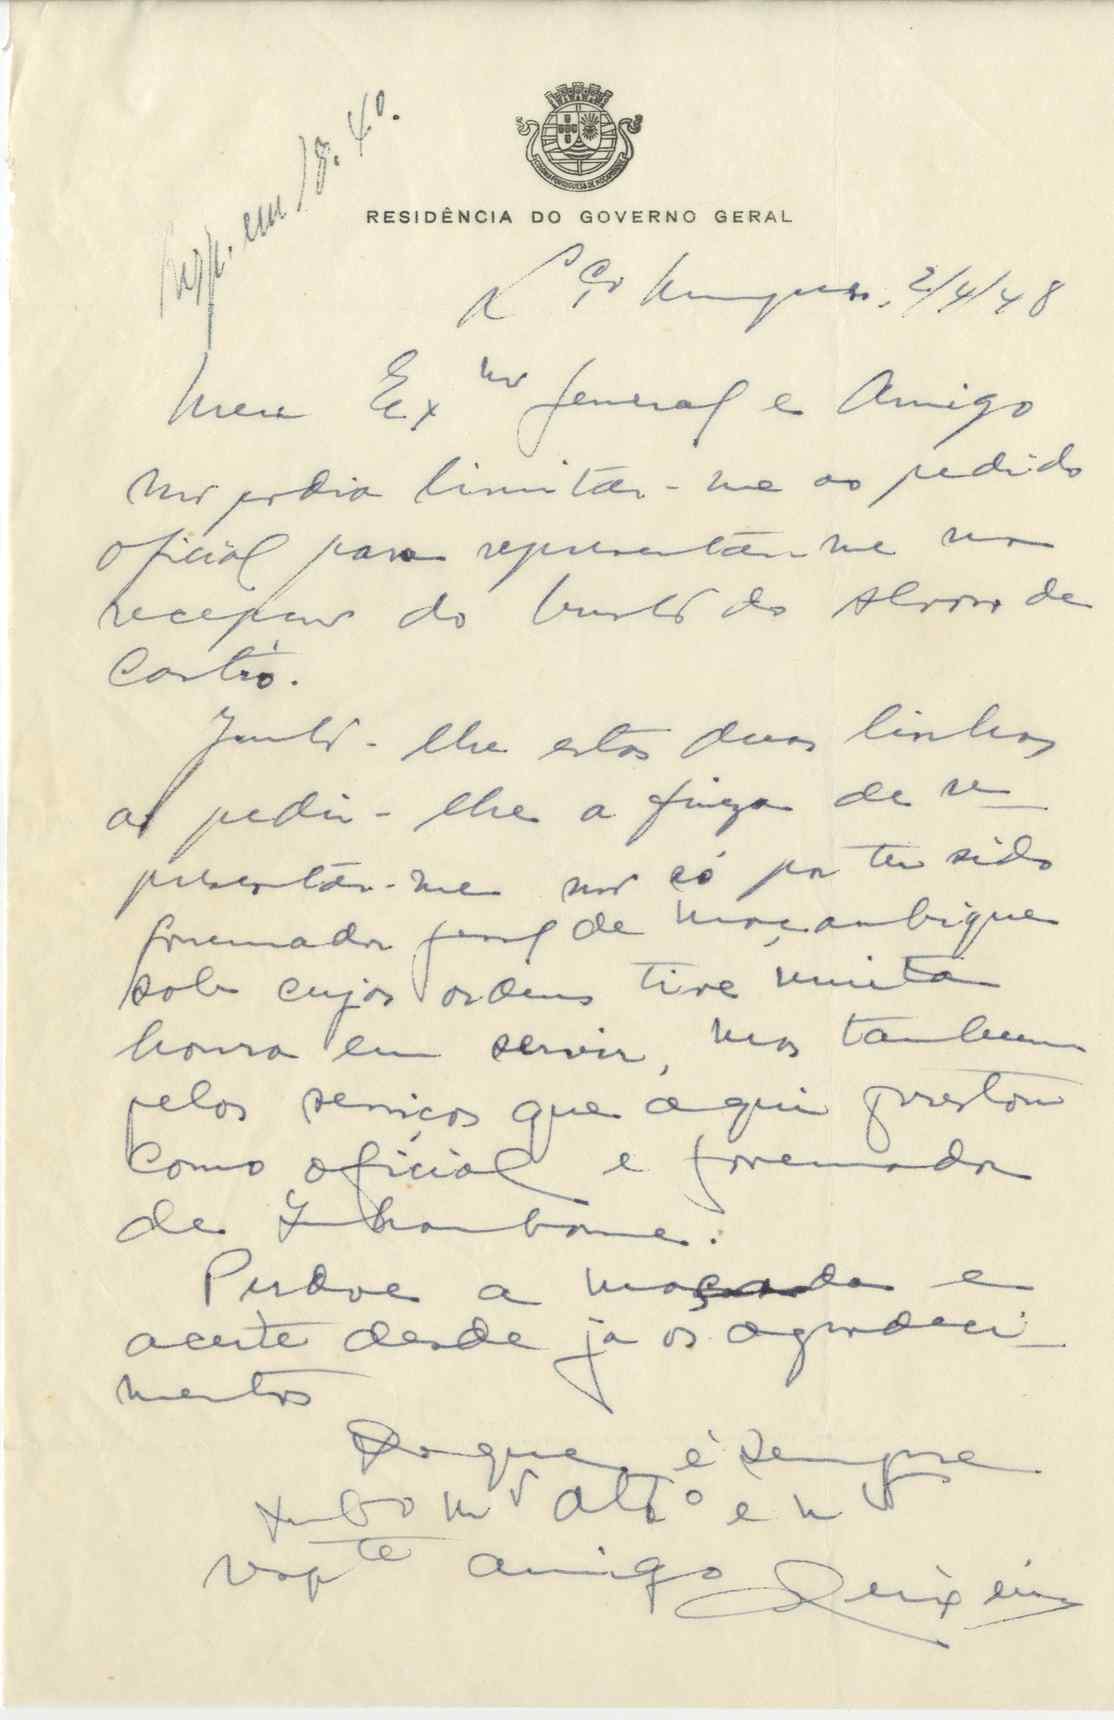 COLONIA PORTUGUESA DE MOÇAMBIQUE
RESIDÊNCIA DO GOVERNO GERAL
Resp. em 18.4.
Lço Marques, 2/4/48
Meu Exmo General e Amigo
Não podia limitár-me ao pedido
oficial para representár-me na
recepção do busto do Alvaro de
Castro.
Junto-lhe estas duas linhas
a pedir-lhe a fineza de re-
presentár-me não só por ter sido
governador geral de Moçambique
sob cujas ordens tive muita
honra em servir, mas tambem
pelos serviços que aqui prestou
como oficial e governador
de Inhambane.
Perdoe a maçada e
aceite desde já os agradeci-
mentos
Do que é sempre
subo mto atto e mto
respte amigo Teixeira